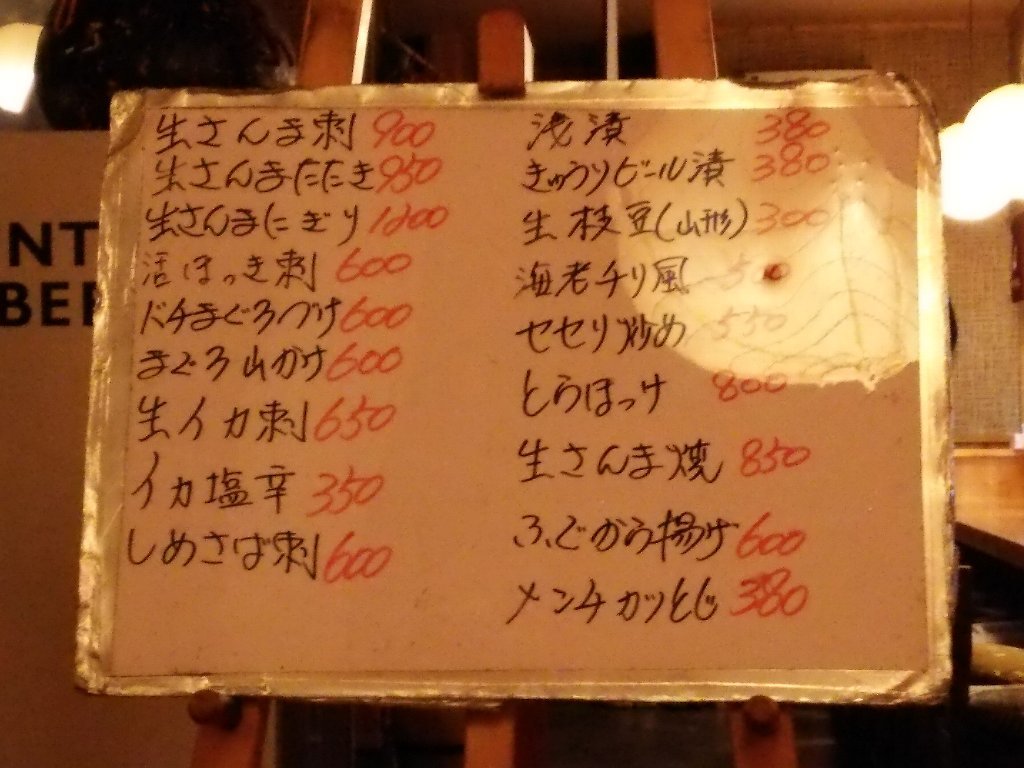 生さんま刺 900
生さんまたたき 950
生さんまにぎり 1200
活ほっき刺 600
バチまぐろづけ 600
まぐろ山かけ 600
生イカ刺 650
イカ塩辛 350
しめさば刺 600
浅漬 380
きゅうりビール漬 380
生枝豆(山形) 300
海老チリ風
セセリ炒め 550
とらほっけ 800
生さんま焼 850
ふぐから揚げ 600
メンチカツとじ 380
NT
BEE